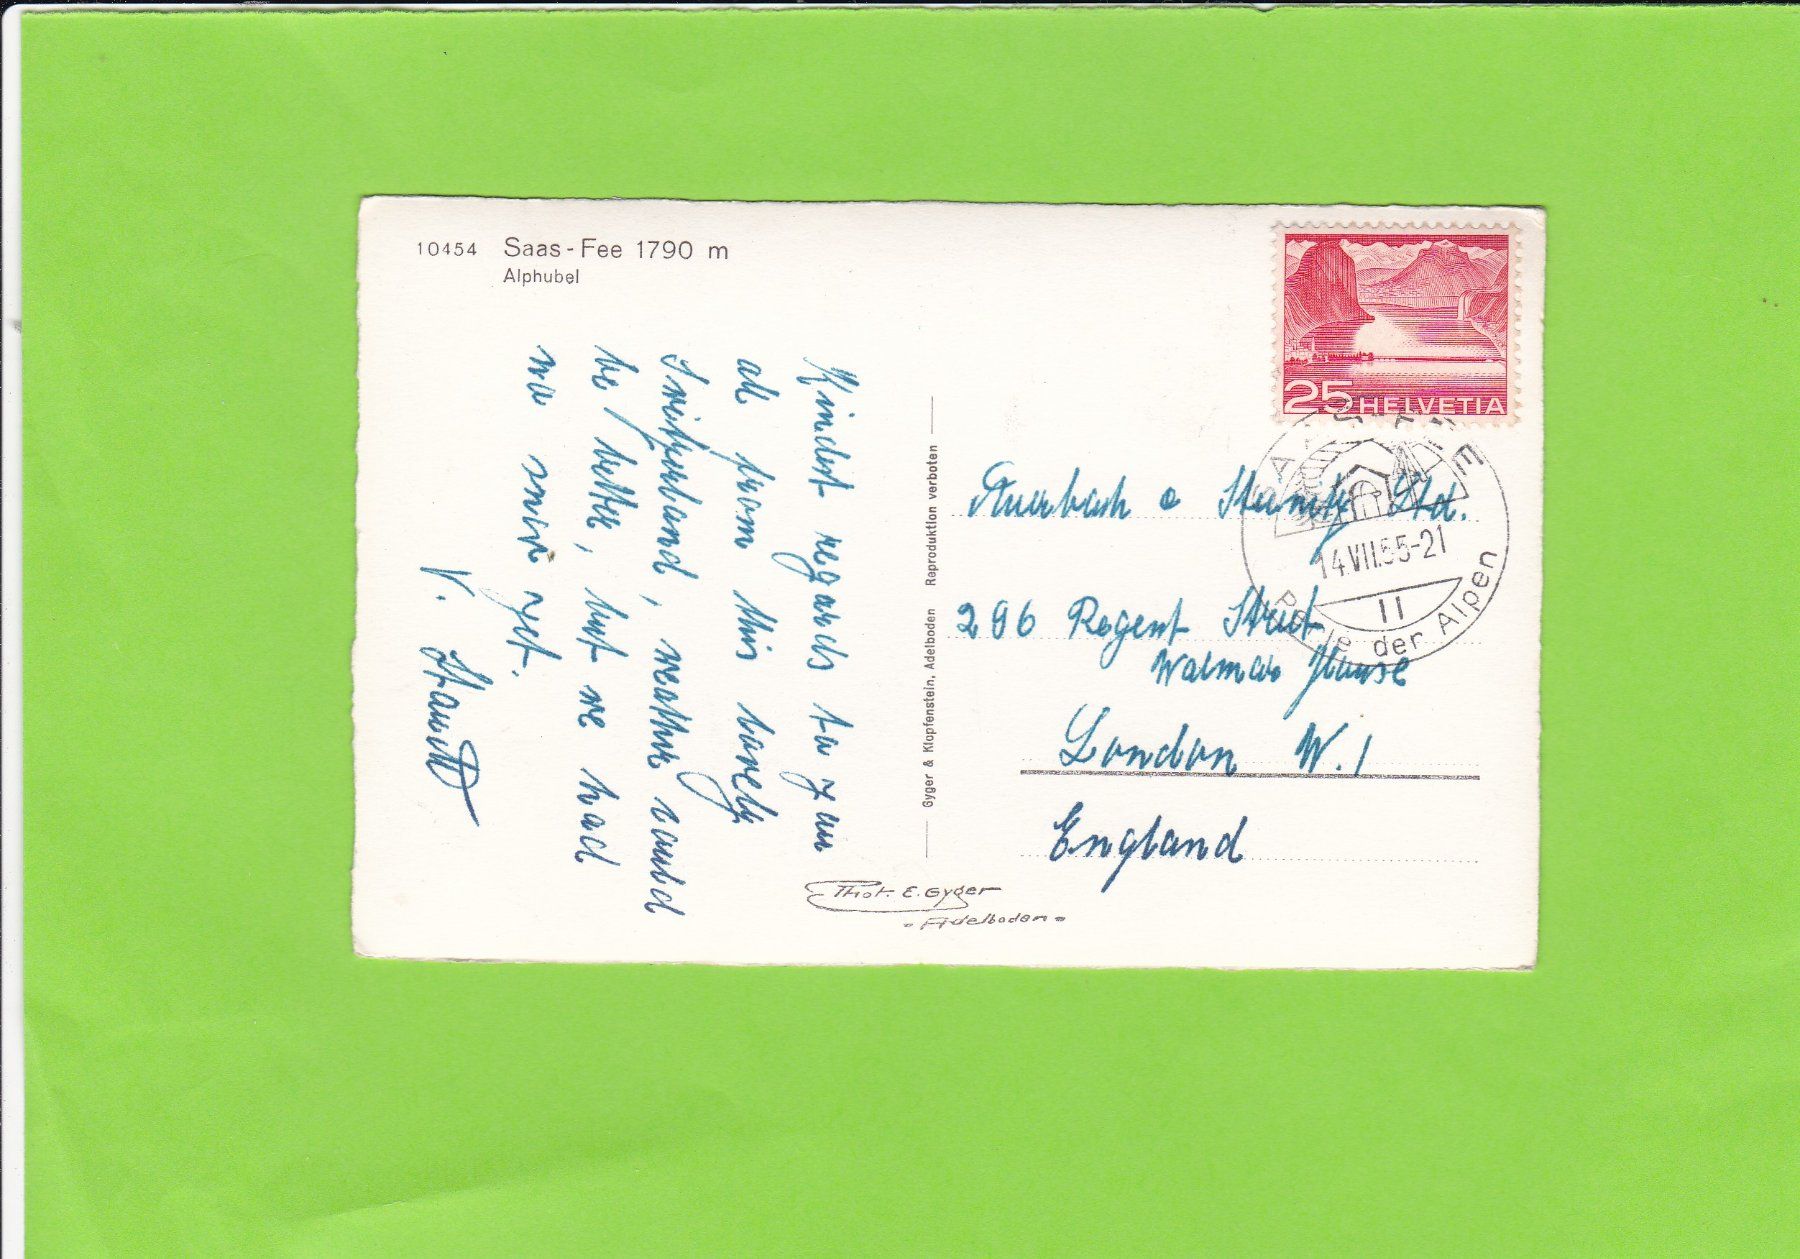 10454 Saas-Fee 1790 m
Alphubel
Kindest regards to you
all from this lovely
Switzerland, weather could
be better, but we had
no snow yet.
V.
Gyger & Klopfenstein, Adelboden Reproduktion verboten
Phot. E. Gyger
- Adelboden -
25 HELVETIA
SAAS-FEE
14.VII.55-21
11
Perle der Alpen
Auerbach & Steinitz Ltd.
296 Regent Street
Walmar House
London W.1
England